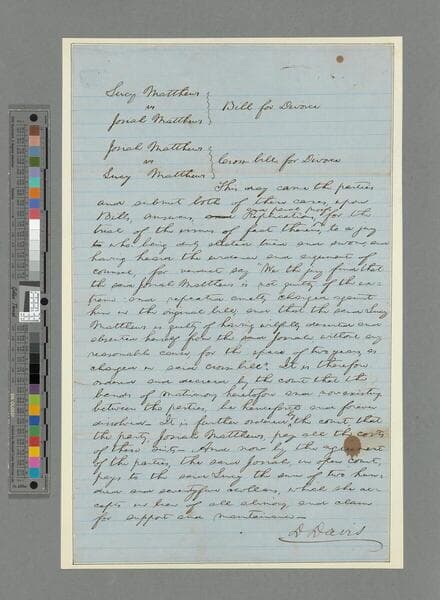 Lucy Matthews
vs
Josiah Matthews
Bill for Divorce
Josiah Matthews
vs
Lucy Matthews
Cross bill for Divorce
This day came the parties
and submit both of these cases, upon
Bills, answers, and Replications, for the
trial of the issues of fact to a jury
who being duly tried and sworn and
having heard the evidence and argument of
counsel, for verdict say We the jury find that
the said Josiah Matthews is not guilty of the
and repeated cruelty charged against
him in the original bill, and that the said Lucy
Matthews is guilty of having wilfully deserted and
absented herself from the said Josiah without any
reasonable cause for the space of two years, as
charged in said cross bill. It is therefore
ordered and decreed by the court that the
bonds of matrimony heretofore and now existing
between the parties, be henceforth and forever
dissolved. It is further ordered by the court, that
the party, Josiah Matthews, pay all the costs
of these suits. And now by the agreement
of the parties, the said Josiah, in open court,
pays to the said Lucy the sum of two hun-
dred and seventy five dollars, which she ac-
cepts in lieu of all alimony and claim
for support and maintenance.
D Davis